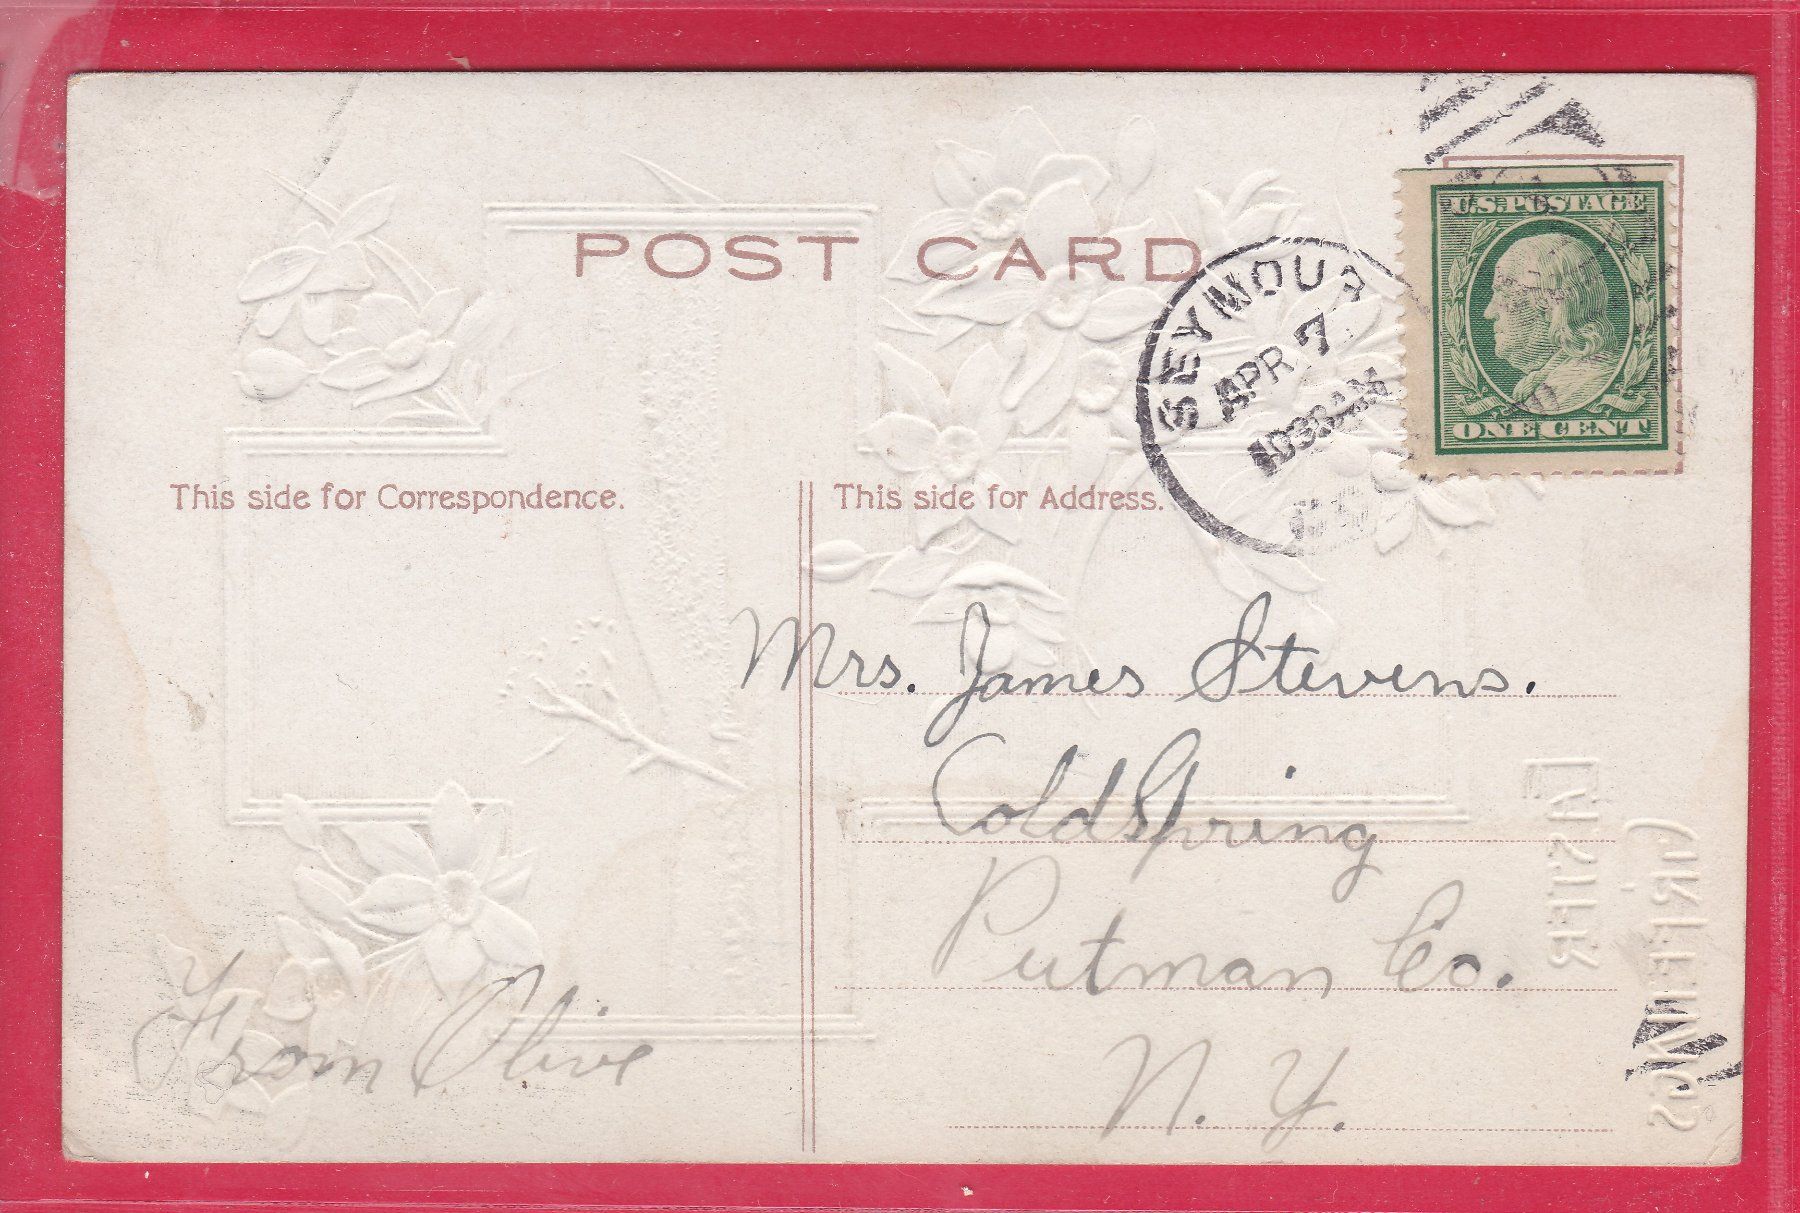 POST CARD
U.S. POSTAGE
ONE CENT
SEYMOUR
APR 7
1030AM
This side for Correspondence.
This side for Address.
Mrs. James Stevens.
Cold Spring
Putman Co.
N. Y.
From Olive
EASTER
GREETINGS